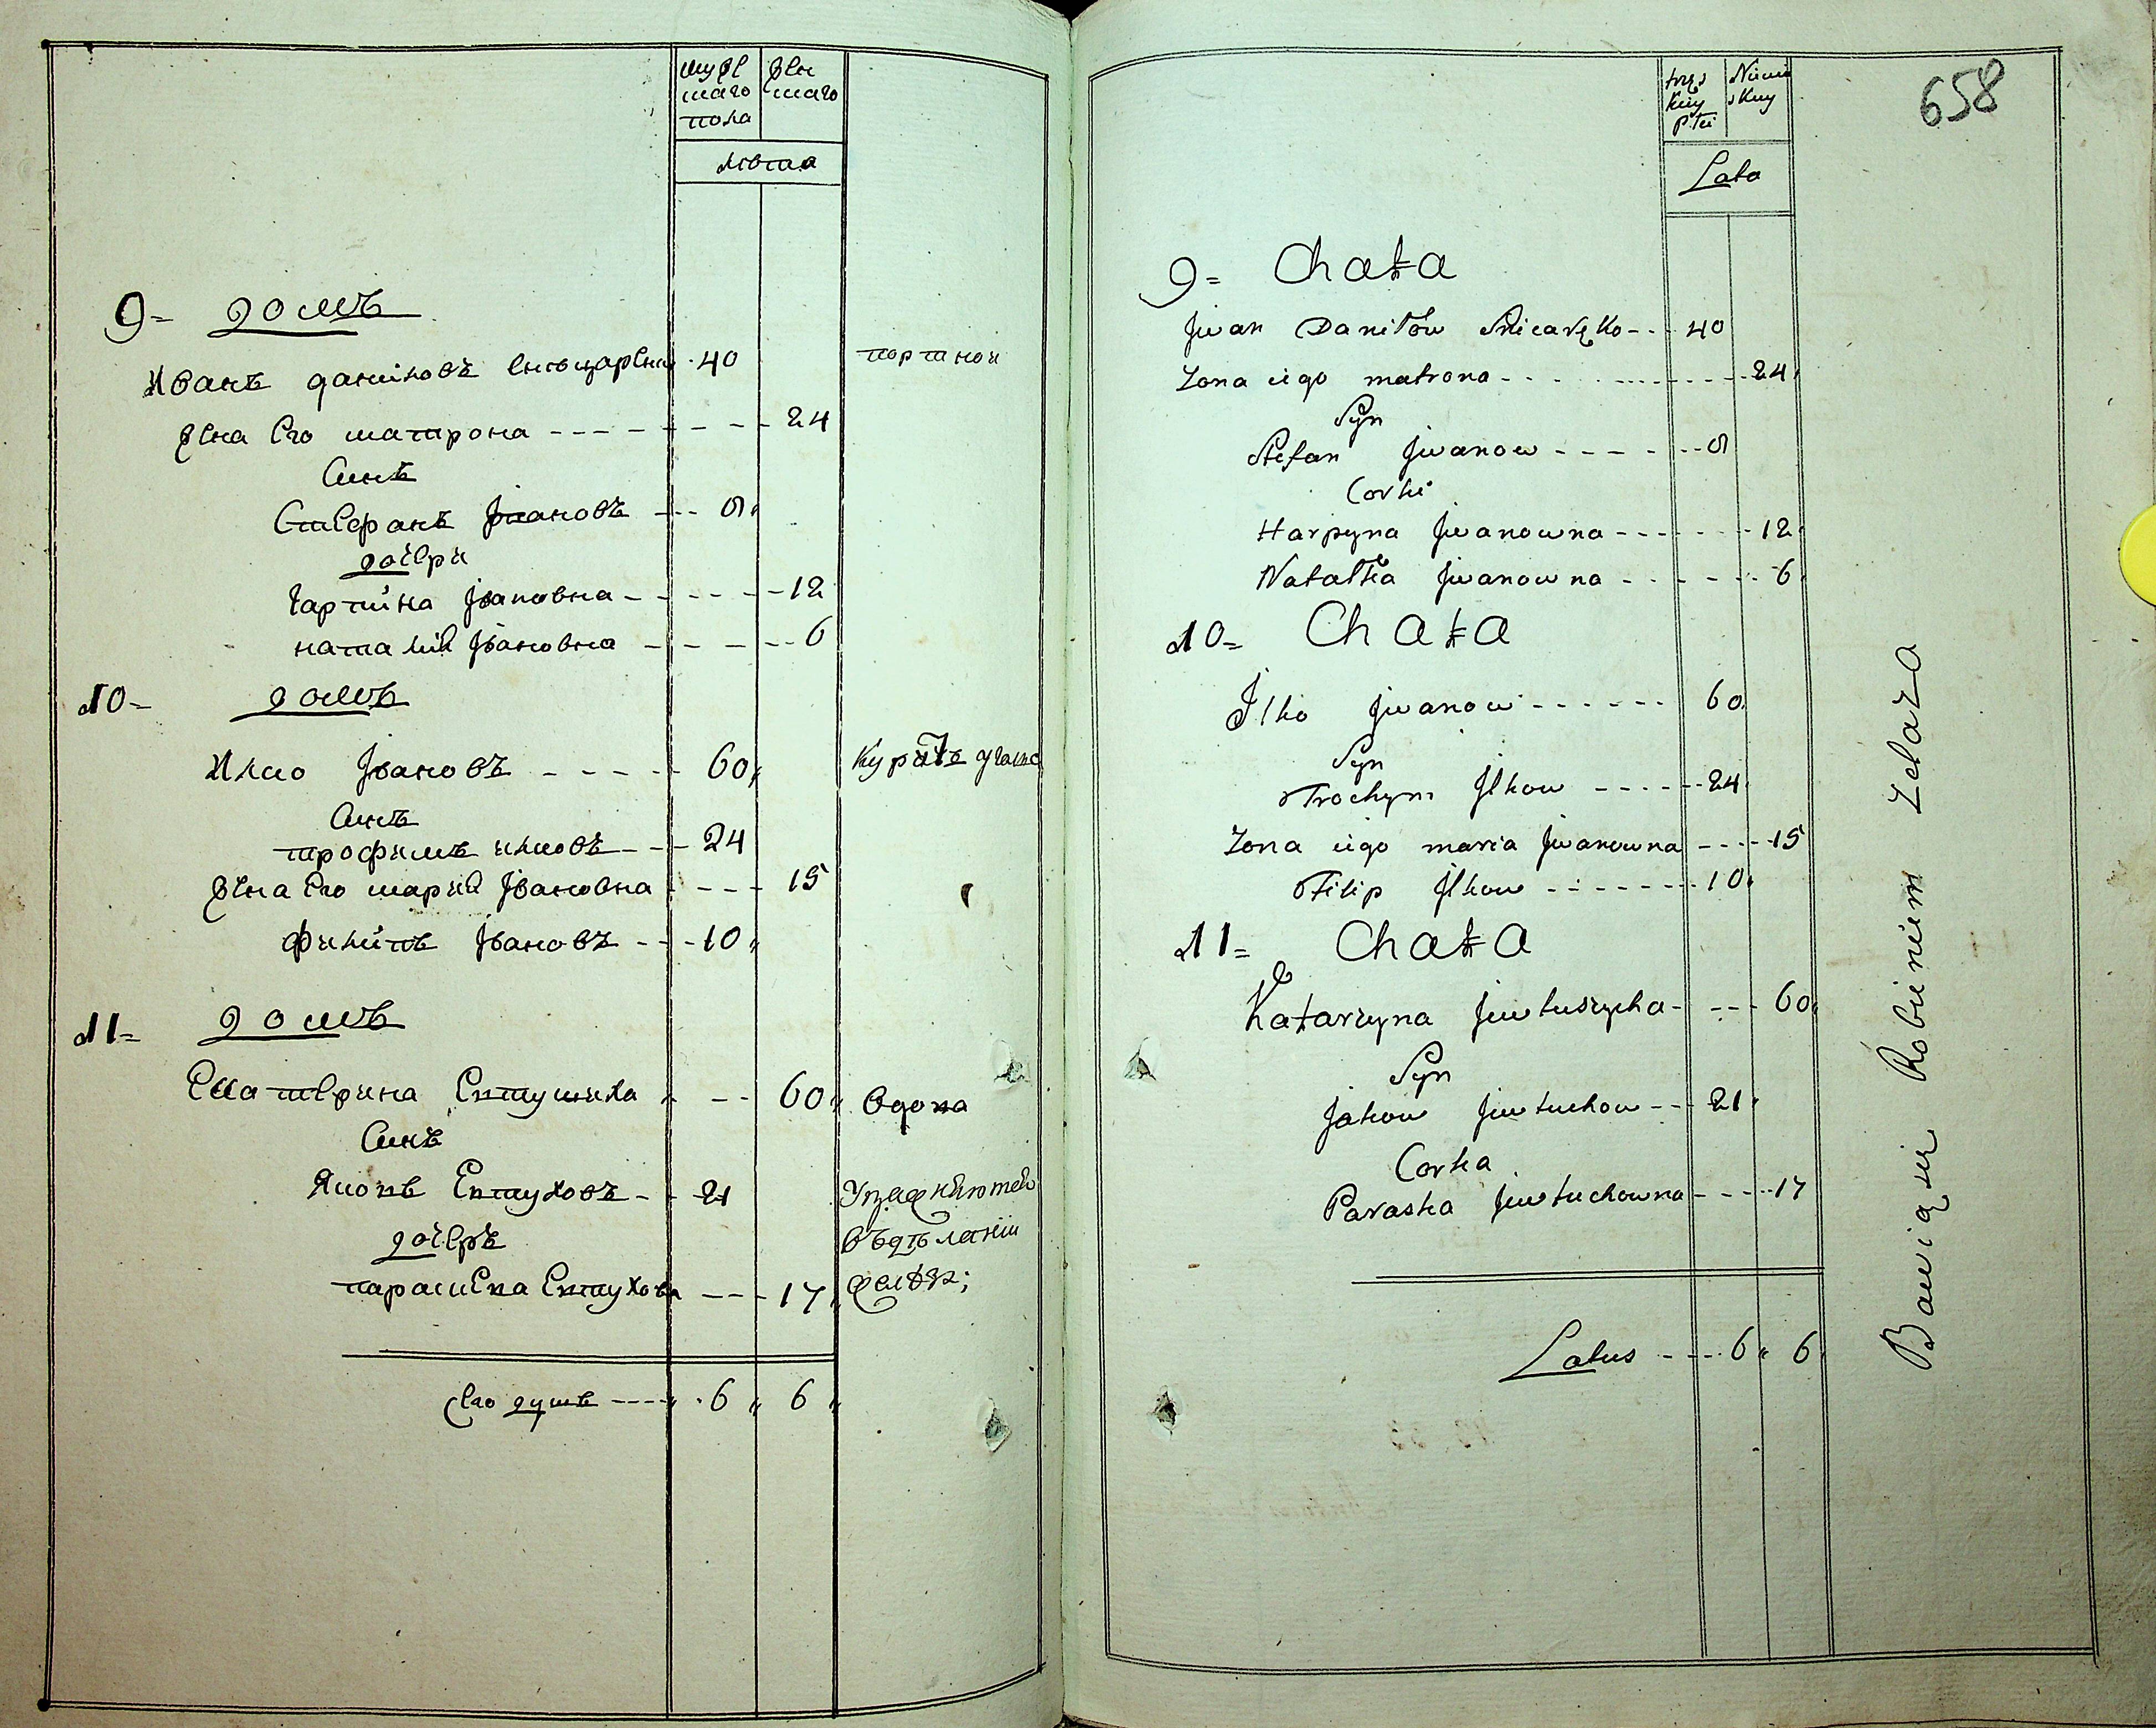 мужескаго пола
женскаго
лѣта
9= домъ
Иванъ даниловъ 40 портной
жена Его матрона 24
Синъ
Стефанъ Івановъ 8
дочери
Гарпина Івановна 12
наталия Івановна 6
10= домъ
Илко Івановъ 60 Куритъ
Синъ
трофимъ илковъ 24
жена Его мария Івановна 15
филипъ Івановъ 10
11= домъ
Екатерина Евтушиха 60 Вдова
Синъ
Яковъ Евтуховъ 21
дочеръ
парасцева Евтухова 17
душъ 6 6
658
Lata
9= Chata
Jwan Daniłow 40
Zona iego matrona 24
Syn
Stefan Jwanow 8
Corki
Harpyna Jwanowna 12
Natałka Jwanowna 6
10= Chata
Jlko Jwanow 60
Syn
Trochym Jlkow 24
Zona iego maria Jwanowna 15
Filip Jlkow 10
11= Chata
Katarzyna Jwtuszycha 60
Syn
Jakow Jwtuchow 21
Corka
Paraska Jwtuchowna 17
Latus 6 6
Bawiący się Robieniem Zelaza